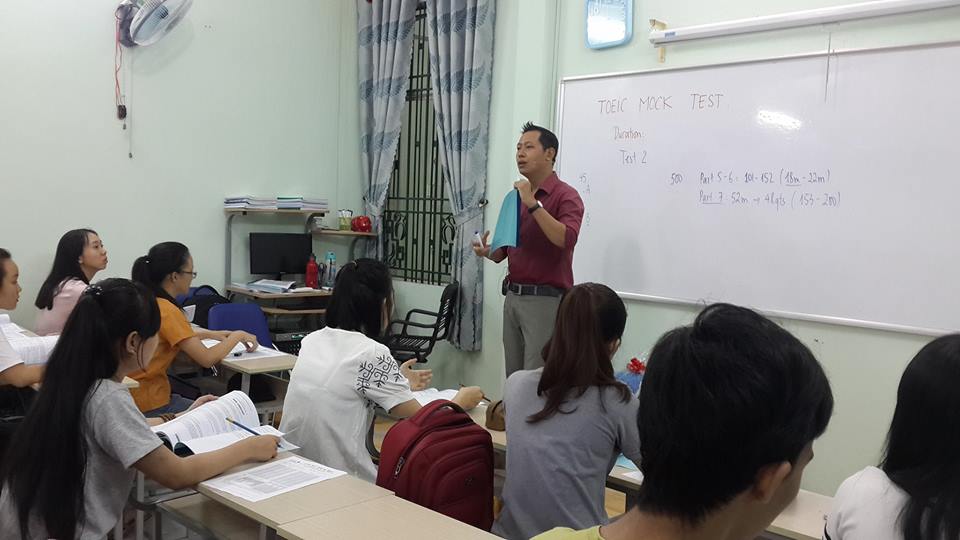 TOEIC MOCK TEST
Duration:
Test 2
45
500 Part 5-6: 101-152 (18m-22m)
Part 7: 52m → 48qts (153-200)